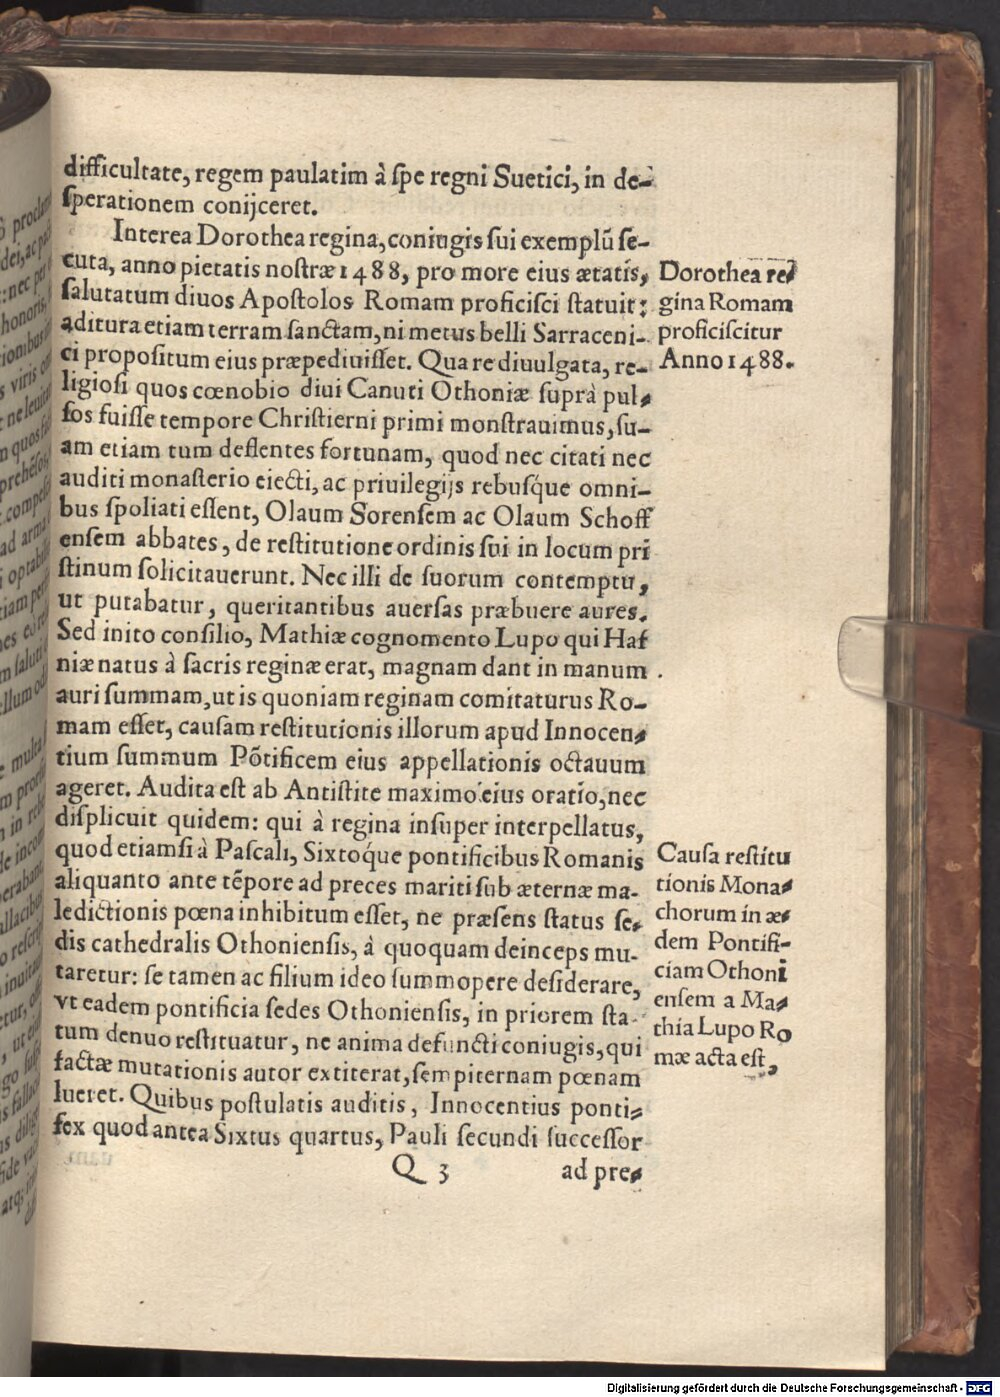 difficultate, regem paulatim à ſpe regni Suetici, in de-
ſperationem conijceret.
Interea Dorothea regina, coniugis ſui exemplũ ſe-
cuta, anno pietatis noſtræ 1488, pro more eius ætatis,
ſalutatum diuos Apoſtolos Romam proficiſci ſtatuit:
aditura etiam terram ſanctam, ni metus belli Sarraceni-
ci propoſitum eius præpediuiſſet. Qua re diuulgata, re-
ligioſi quos cœnobio diui Canuti Othoniæ ſuprà pul-
ſos fuiſſe tempore Chriſtierni primi monſtrauimus, ſu-
am etiam tum deflentes fortunam, quod nec citati nec
auditi monaſterio eiecti, ac priuilegijs rebuſq́ue omni-
bus ſpoliati eſſent, Olaum Sorenſem ac Olaum Schoff
enſem abbates, de reſtitutione ordinis ſui in locum pri
ſtinum ſolicitauerunt. Nec illi de ſuorum contemptu,
ut putabatur, queritantibus auerſas præbuere aures.
Sed inito conſilio, Mathiæ cognomento Lupo qui Haf
niæ natus à ſacris reginæ erat, magnam dant in manum
auri ſummam, ut is quoniam reginam comitaturus Ro-
mam eſſet, cauſam reſtitutionis illorum apud Innocen-
tium ſummum Põtificem eius appellationis octauum
ageret. Audita eſt ab Antiſtite maximo eius oratio, nec
diſplicuit quidem: qui à regina inſuper interpellatus,
quod etiamſi à Paſcali, Sixtoq́ue pontificibus Romanis
aliquanto ante tẽpore ad preces mariti ſub æternæ ma-
ledictionis pœna inhibitum eſſet, ne præſens ſtatus ſe-
dis cathedralis Othonienſis, à quoquam deinceps mu-
taretur: ſe tamen ac filium ideo ſummopere deſiderare,
vt eadem pontificia ſedes Othonienſis, in priorem ſta-
tum denuo reſtituatur, ne anima defuncti coniugis, qui
factæ mutationis autor extiterat, ſempiternam pœnam
lueret. Quibus poſtulatis auditis, Innocentius ponti-
fex quod antea Sixtus quartus, Pauli ſecundi ſucceſſor
Q 3 ad pre-
Dorothea re-
gina Romam
proficiſcitur
Anno 1488.
Cauſa reſtitu
tionis Mona-
chorum in æ-
dem Pontifi-
ciam Othoni
enſem a Ma-
thia Lupo Ro
mæ acta eſt,
Digitalisierung gefördert durch die Deutsche Forschungsgemeinschaft - DFG